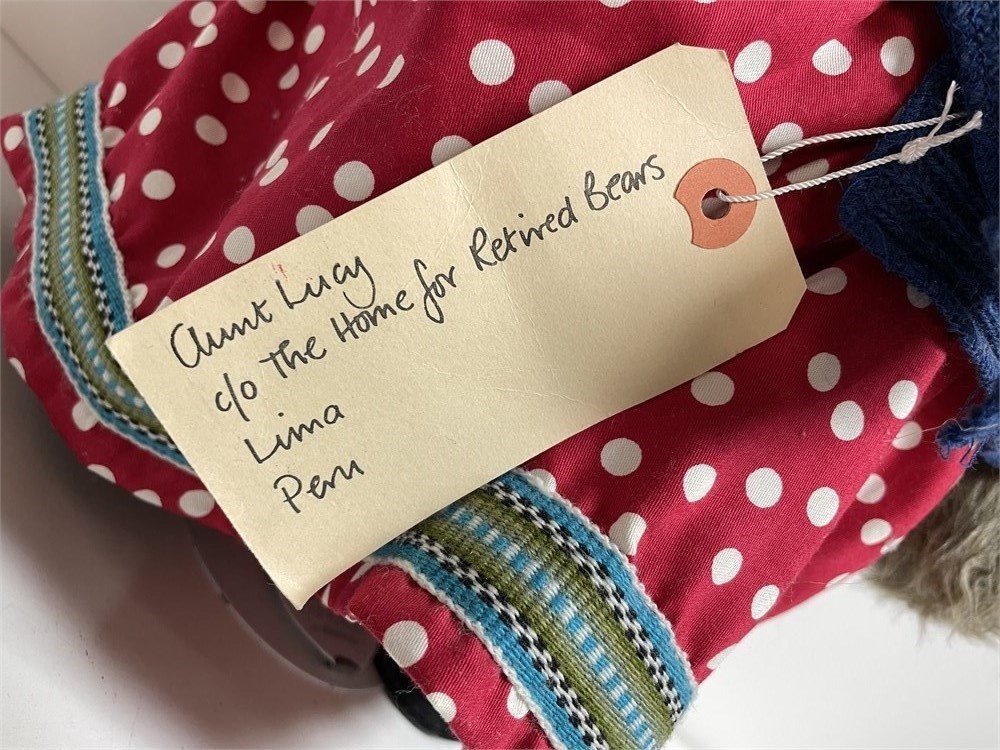 Aunt Lucy
c/o The Home for Retired Bears
Lima
Peru